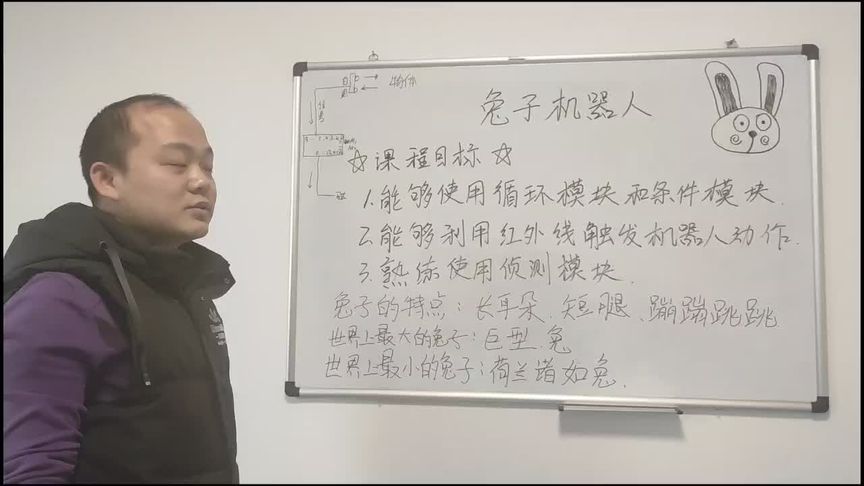 物体
兔子机器人
信号
☆课程目标☆
1.能够使用循环模块和条件模块.
2.能够利用红外线触发机器人动作.
3.熟练使用侦测模块.
兔子的特点:长耳朵.短腿、蹦蹦跳跳
世界上最大的兔子:巨型.兔
世界上最小的兔子:荷兰诸如兔.